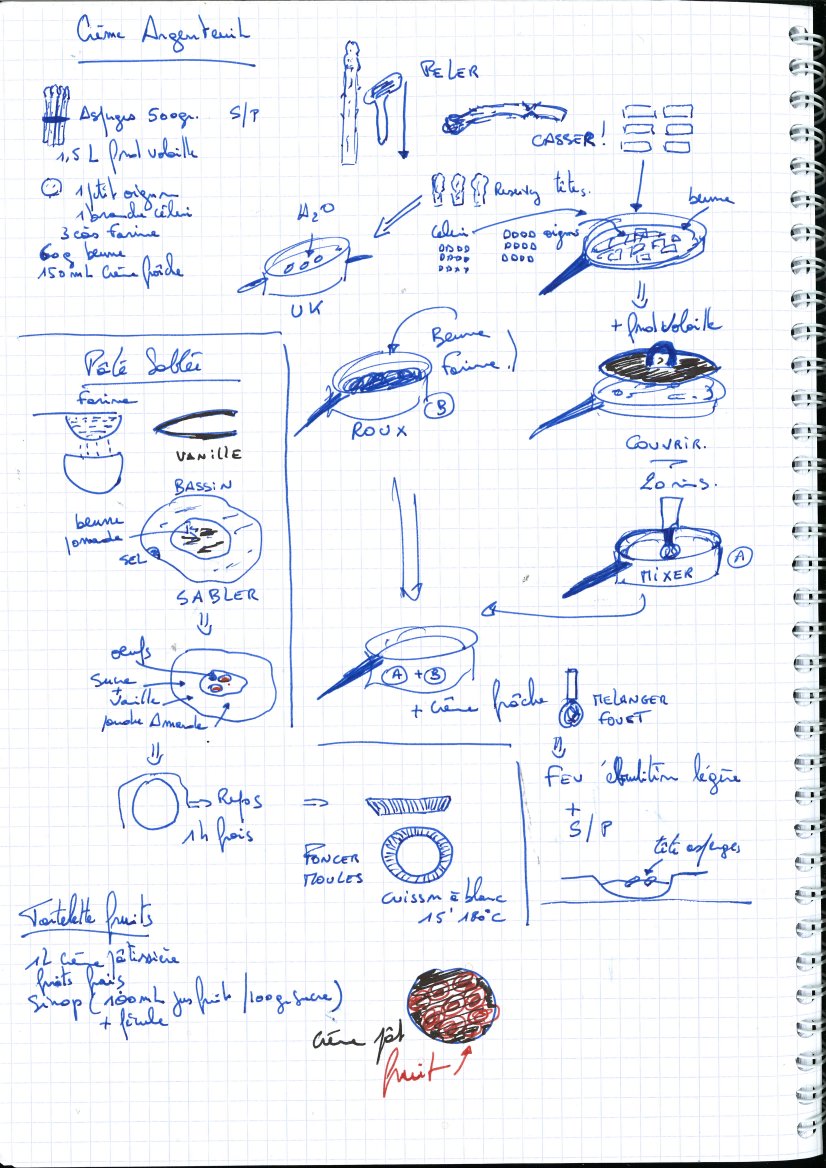 Crème Argenteuil
Asperges 500gr. S/P
1,5 L fond volaille
1 ptit oignon
1 branche céleri
3 càs farine
60g beurre
150mL crème fraîche
PELER
CASSER!
Reservez têtes.
H2O
UK
Céleri
oignons
beurre
+ fond volaille
COUVRIR.
20 mins.
MIXER
A
Beurre
Farine
B
ROUX
A + B
+ Crème fraîche
MELANGER
FOUET
FEU ébullition légère
+
S/P
tête asperges
Pâte Sablée
farine
VANILLE
BASSIN
beurre
pomade
SEL
SABLER
oeufs
Sucre
+
Vanille
poudre Amande
Repos
1h frais
FONCER
MOULES
Cuisson à blanc
15' 180°C
Tartelette fruits
1L Crème pâtissière
fruits frais
Sirop (100mL jus fruits / 100gr sucre)
+ fécule
Crème pât
fruit